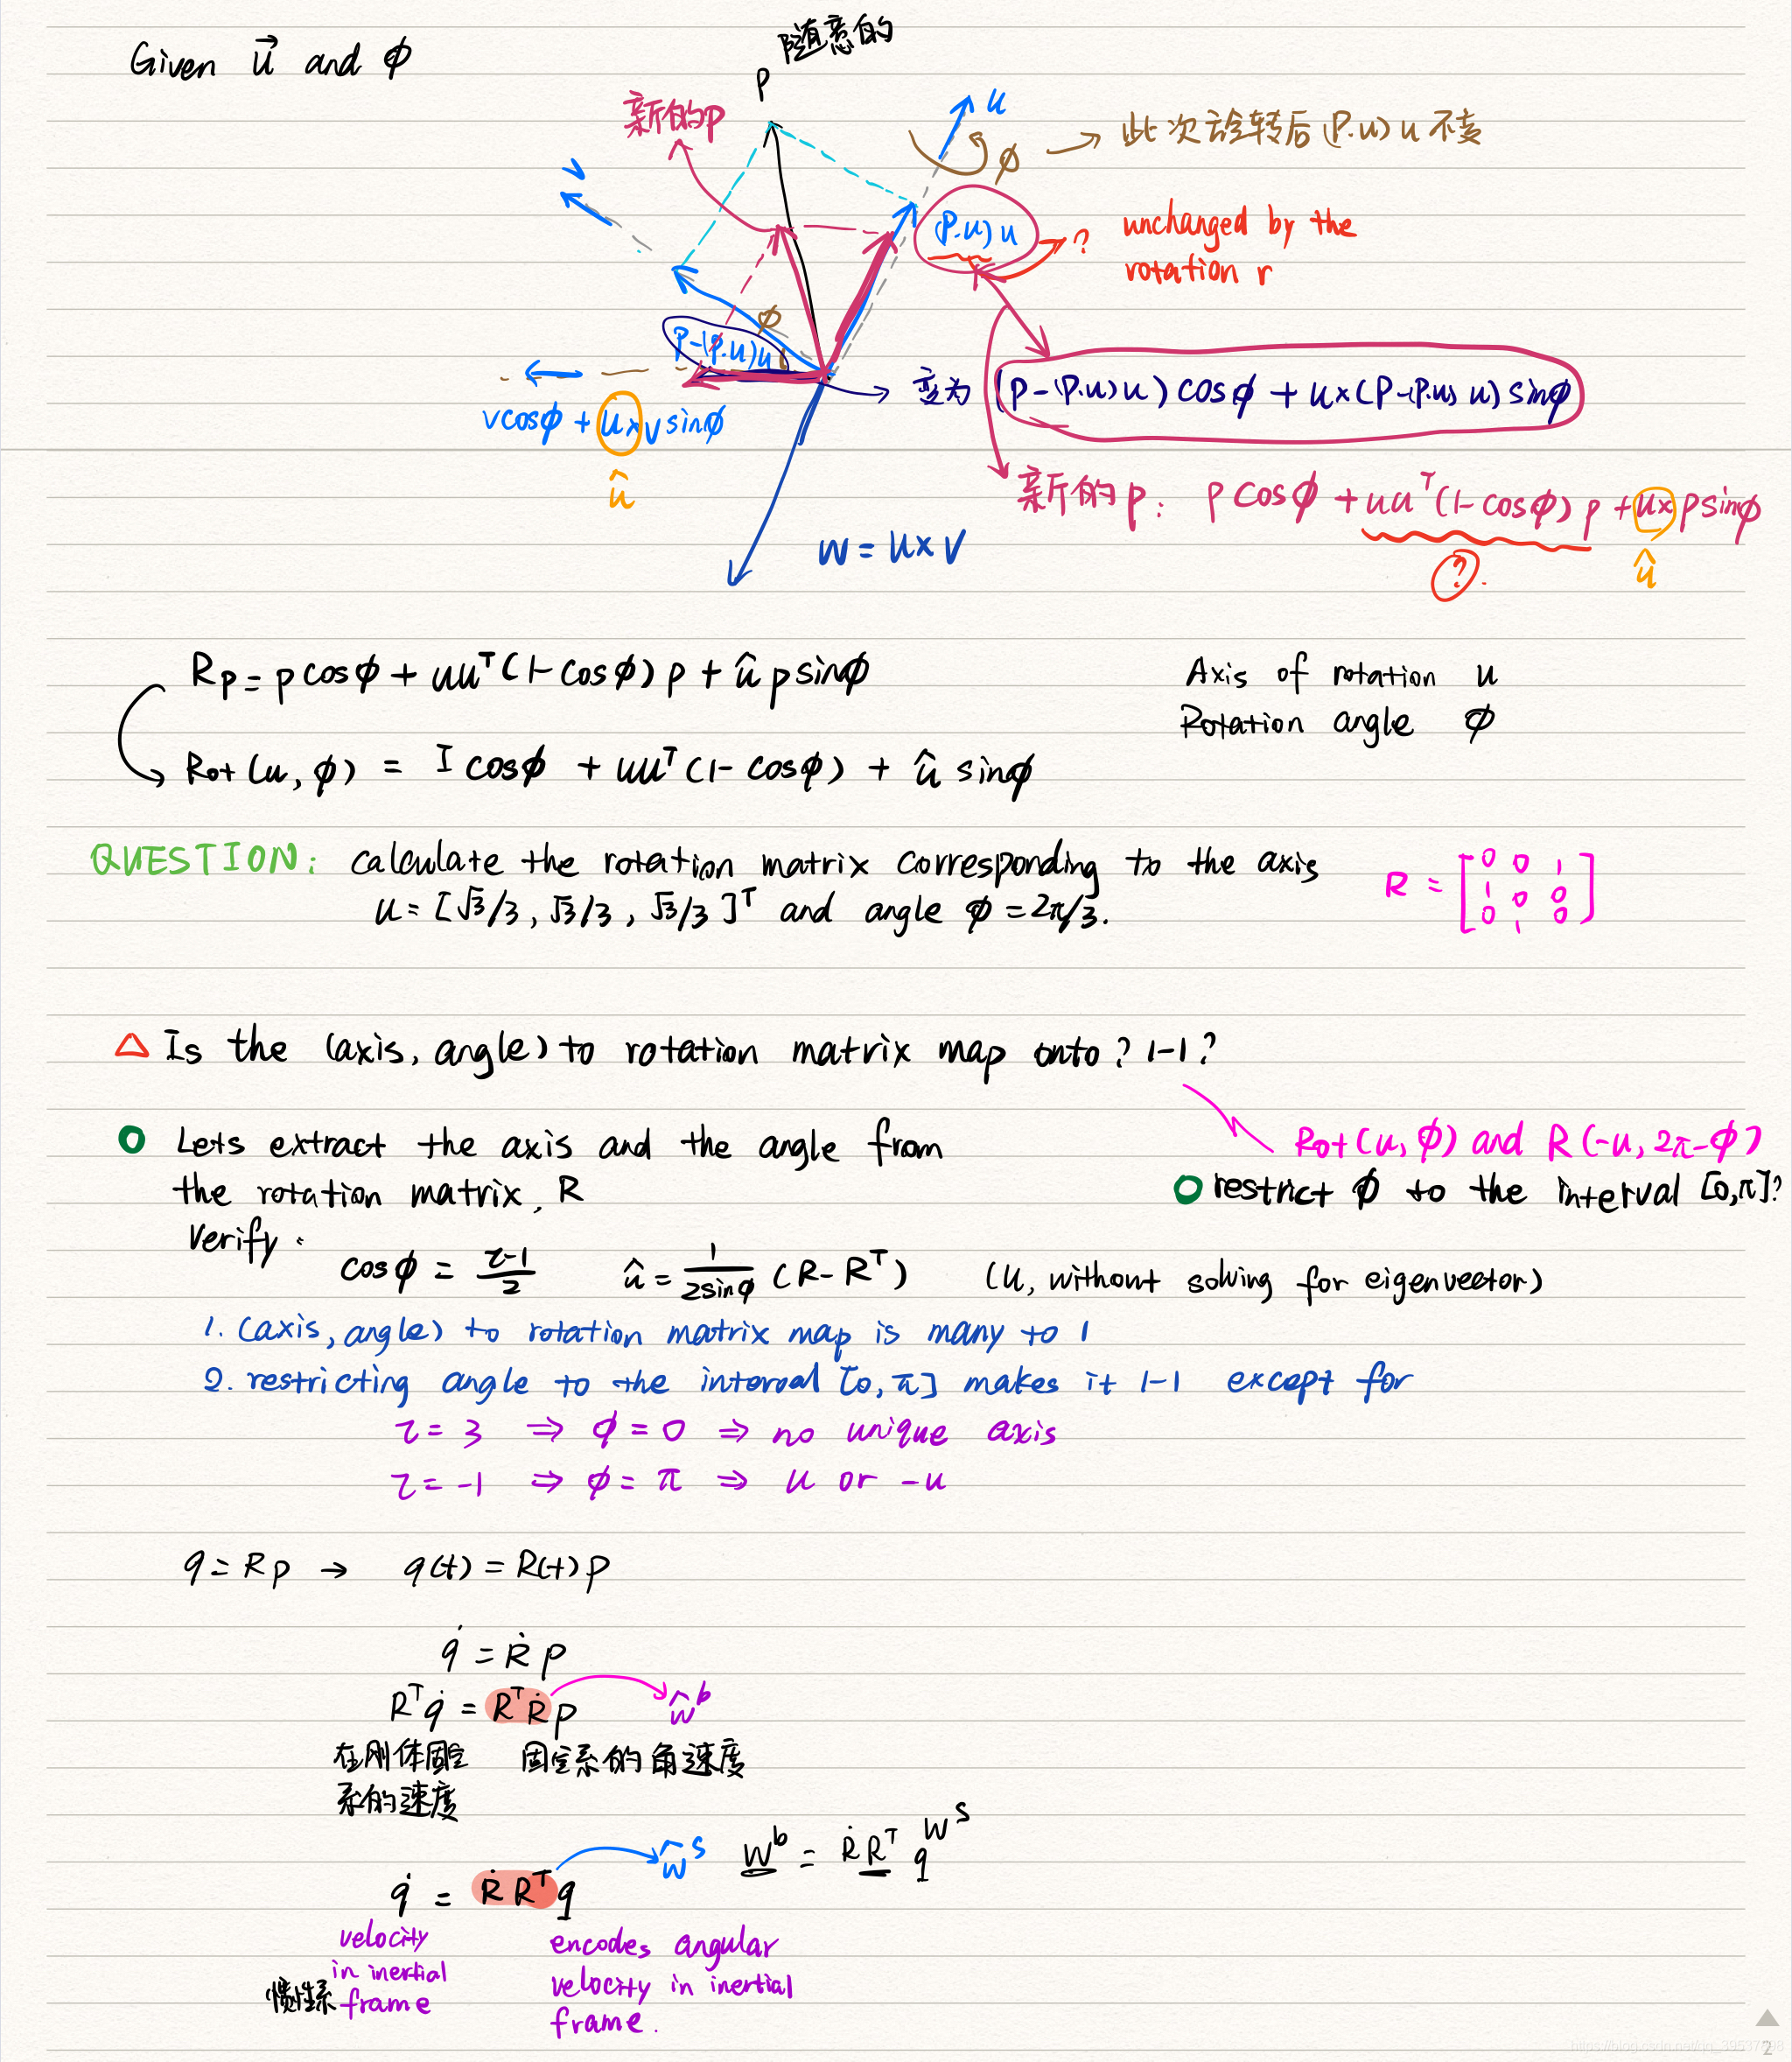 Given u⃗ and ϕ
随意的
P
新的p
u
ϕ
此次旋转后(P.u)u不变
v
(P.u)u
?
unchanged by the
rotation r
ϕ
P-(P.u)u
变为 (P-(P.u)u)cosϕ + u×(P-(P.u)u)sinϕ
vcosϕ + u×v sinϕ
û
新的p: pcosϕ + uuᵀ(1-cosϕ)p + u×psinϕ
?
û
w = u×v
Rp = pcosϕ + uuᵀ(1-cosϕ)p + û psinϕ
Axis of rotation u
Rotation angle ϕ
Rot(u,ϕ) = I cosϕ + uuᵀ(1-cosϕ) + û sinϕ
QUESTION: calculate the rotation matrix corresponding to the axis
u=[√3/3, √3/3, √3/3]ᵀ and angle ϕ=2π/3.
R = [0 0 1
1 0 0
0 1 0]
△ Is the (axis, angle) to rotation matrix map onto? 1-1?
Rot(u,ϕ) and R(-u, 2π-ϕ)
restrict ϕ to the interval [0,π]?
Lets extract the axis and the angle from
the rotation matrix, R
Verify.
cosϕ = (τ-1)/2 û = 1/(2sinϕ) (R-Rᵀ) (u, without solving for eigenvector)
1. (axis, angle) to rotation matrix map is many to 1
2. restricting angle to the interval [0,π] makes it 1-1 except for
τ=3 ⇒ ϕ=0 ⇒ no unique axis
τ=-1 ⇒ ϕ=π ⇒ u or -u
q=Rp → q(t)=R(t)p
q̇ = Ṙp
Rᵀq̇ = RᵀṘp ŵᵇ
在刚体固定
系的速度
固定系的角速度
q̇ = ṘRᵀq ŵˢ wᵇ = ṘRᵀq wˢ
velocity
in inertial
frame
惯性系
encodes angular
velocity in inertial
frame.
2